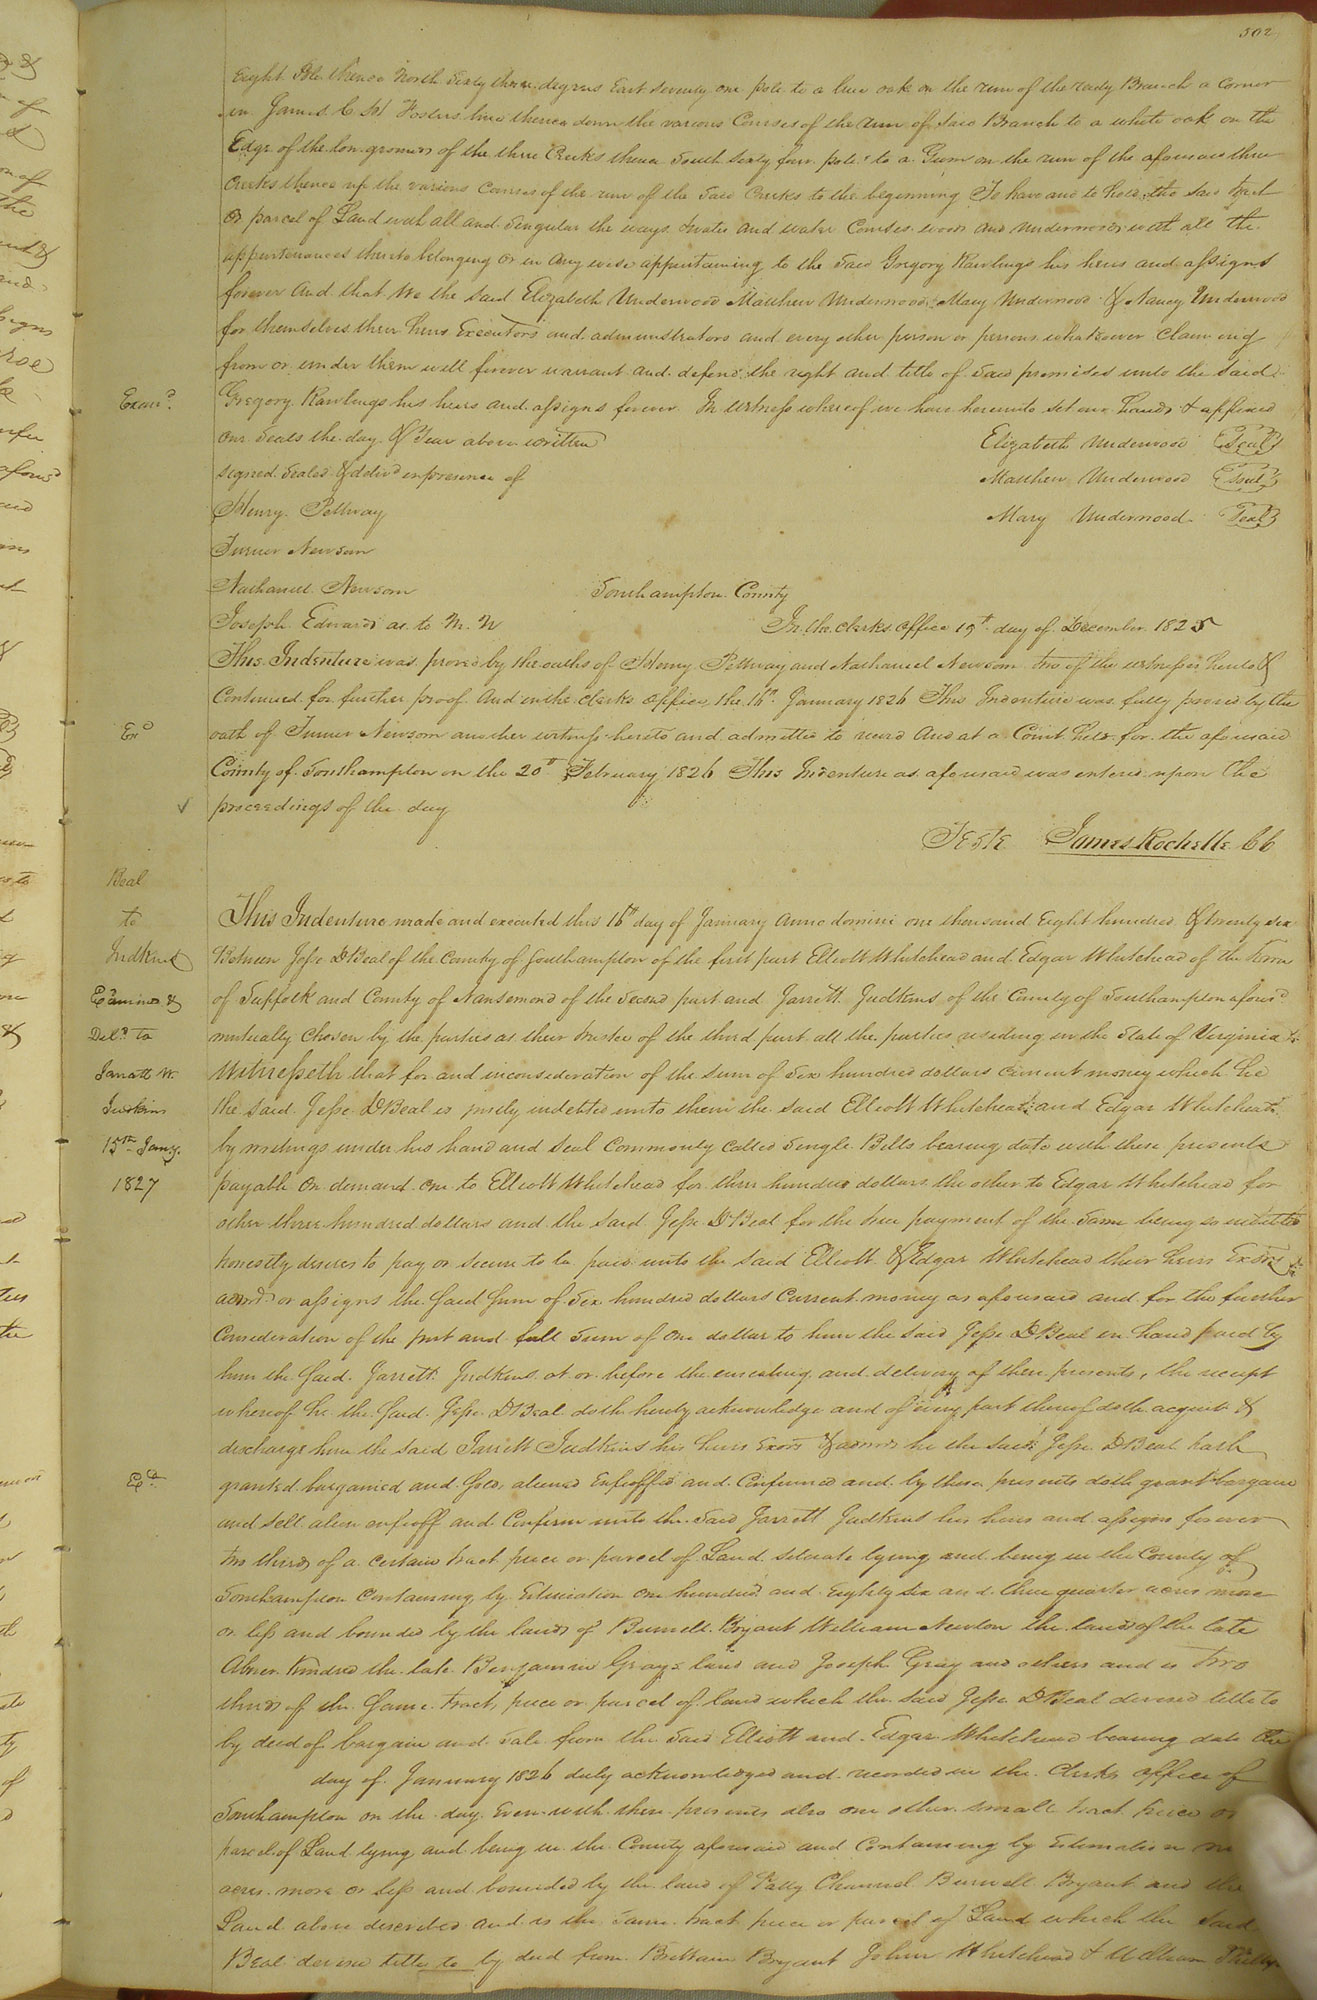 502
Eight Pole thence North Sixty three degrees East Seventy one pole to a live oak on the run of the ready Branch a Corner
in James C W Fosters line thence down the various Courses of the run of Said Branch to a white oak on the
Edge of the low grounds of the three Creeks thence South Sixty four poles to a Gum on the run of the aforesaid three
Creeks thence up the various Courses of the run off the Said Creeks to the beginning To have and to hold the Said tract
or parcel of Land with all and Singular the ways Water and water Courses woods and underwoods with all the
appurtenances thereto belonging or in any wise appertaining to the Said Gregory Rawlings his heirs and assigns
forever And that We the Said Elizabeth Underwood Matthew Underwood, Mary Underwood & Nancy Underwood
for themselves their heirs Executors and administrators and every other person or persons whatsoever Claiming
from or under them will forever warrant and defend the right and title of Said premises unto the Said
Exam.d Gregory Rawlings his heirs and assigns forever In Witness whereof we have hereunto Set our hands & affixed
our Seals the day & Year above written Elizabeth Underwood Seal
signed Sealed & deliv.d in presence of Matthew Underwood Seal
Henry Pettway Mary Underwood Seal
Turner Newsom
Nathaniel Newsom Southampton County
Joseph Edwards as to M. U In the Clerks office 19th day of December 1825
This Indenture was proved by the oaths of Henry Pettway and Nathaniel Newsom two of the witnesses hereto &
Continued for further proof And in the Clerks office, the 16th January 1826 This Indenture was fully proved by the
Ex.d oath of Turner Newsom another witness hereto and admitted to record And at a Court held for the aforesaid
County of Southampton on the 20th February 1826 This Indenture as aforesaid was entered upon the
proceedings of the day
Teste James Rochelle CC
Beal
to This Indenture made and executed this 16th day of January Anno domini one thousand Eight hundred & twenty six
Judkins Between Jesse D Beal of the County of Southampton of the first part Elliott Whitehead and Edgar Whitehead of the Town
Examined & of Suffolk and County of Nansemond of the Second part and Jarrett Judkins of the County of Southampton afores.d
Del.d to mutually Chosen by the parties as their trustee of the third part all the parties residing in the State of Virginia
Jarratt W. Witnesseth that for and in consideration of the Sum of Six hundred dollars Current money which he
Judkins the Said Jesse D Beal is justly indebted unto them the Said Elliott Whitehead and Edgar Whitehead
15th Jany. by writings under his hand and Seal Commonly Called Single Bills bearing date with these presents
1827 payable on demand one to Elliott Whitehead for three hundred dollars the other to Edgar Whitehead for
other three hundred dollars and the Said Jesse D Beal for the true payment of the Same being so indebted
honestly desires to pay or Secure to be paid unto the Said Elliott & Edgar Whitehead their heirs Exors
admrs or assigns the Said Sum of Six hundred dollars Current money as aforesaid and for the further
Consideration of the just and full Sum of one dollar to him the Said Jesse D Beal in hand paid by
him the Said Jarrett Judkins at or before the ensealing and delivery of these presents, the receipt
whereof he the Said Jesse D Beal doth hereby acknowledge and of every part thereof doth acquit &
discharge him the Said Jarrett Judkins his heirs Exors & admrs he the Said Jesse D Beal hath
Ex.d granted bargained and Sold, aliened Enfeoffed and Confirmed and by these presents doth grant bargain
and Sell alien enfeoff and Confirm unto the Said Jarrett Judkins his heirs and assigns forever
two thirds of a certain tract piece or parcel of Land Situate lying and being in the County of
Southampton Containing by Estimation one hundred and Eighty Six and three quarter acres more
or less and bounded by the lands of Burwell Bryant William Newton the lands of the late
Abner Kindred the late Benjamin Grays land and Joseph Gray and others and is two
thirds of the Same tract, piece or parcel of land which the Said Jesse D Beal derived title to
by deed of bargain and Sale from the Said Elliott and Edgar Whitehead bearing date the
day of January 1826 duly acknowledged and recorded in the Clerks office of
Southampton on the day Even with these presents also one other small tract piece or
parcel of Land lying and being in the County aforesaid and Containing by Estimation
acres more or less and bounded by the land of Patty Channel Burwell Bryant and the
Land above described and is the Same tract piece or parcel of Land which the Said
Beal derived title to by deed from Brittain Bryant John Whitehead & William